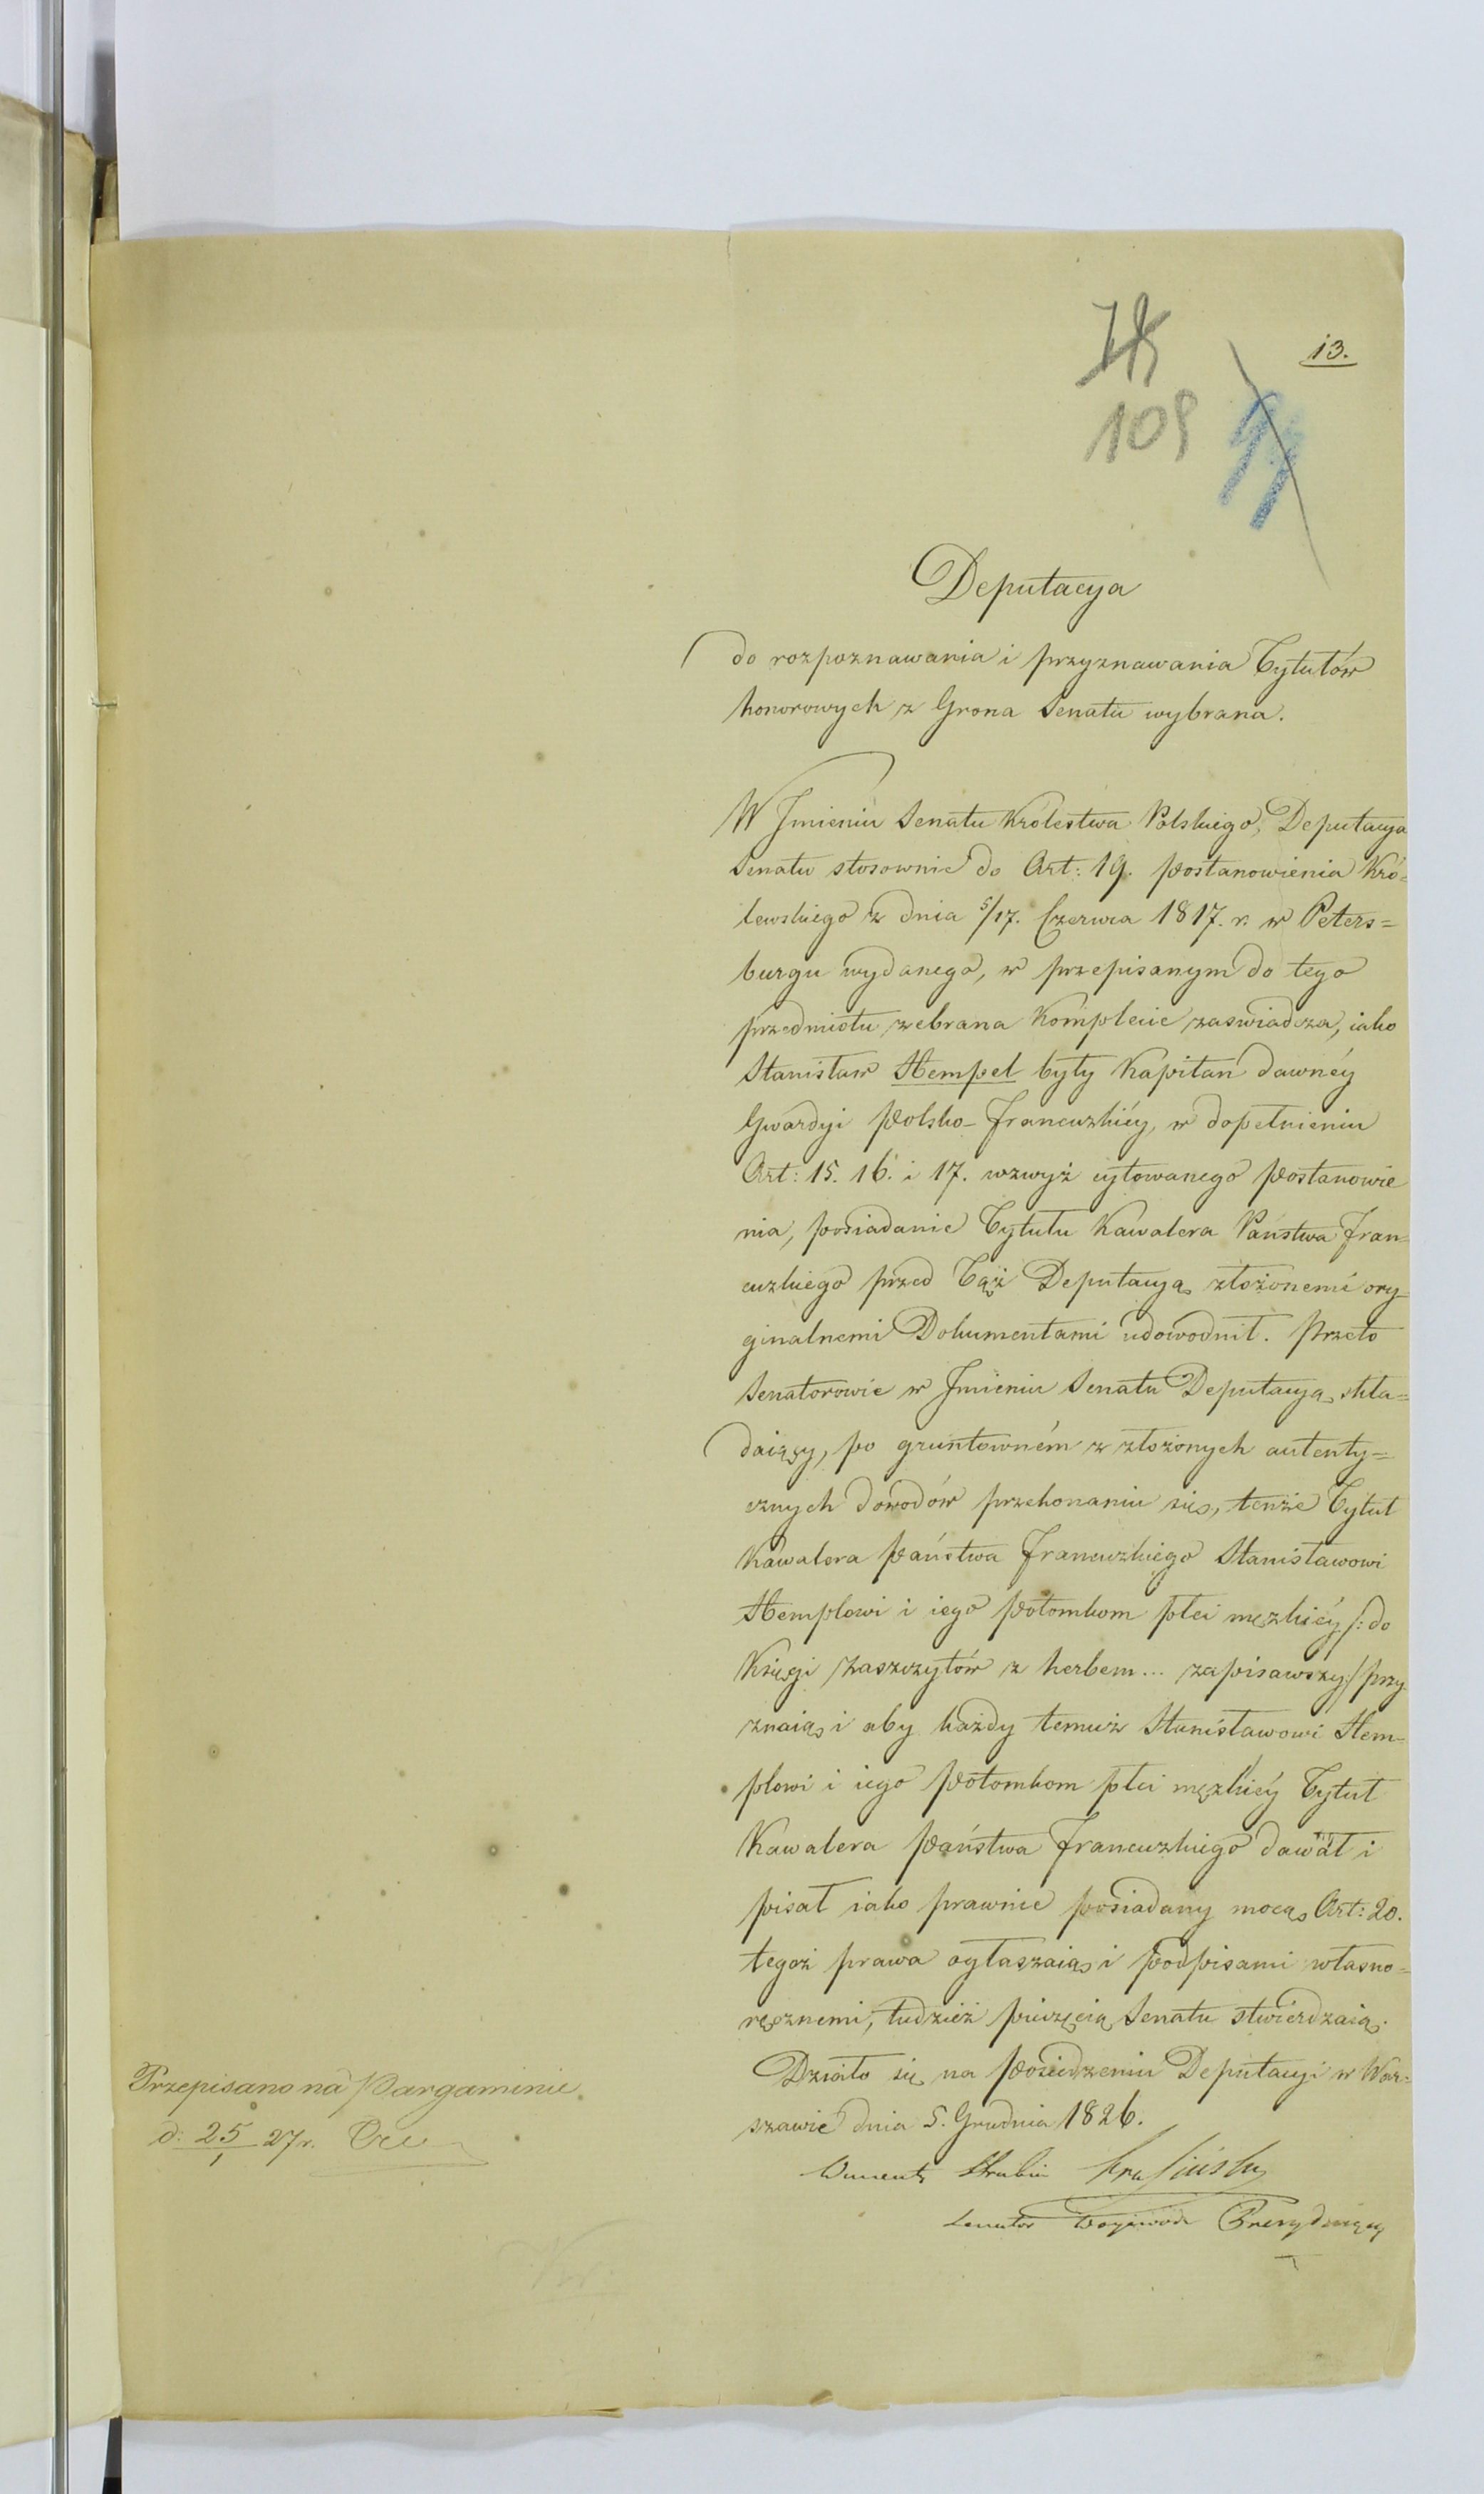 13.
109
Deputacya
do rozpoznawania i przyznawania Tytułów
honorowych z Grona Senatu wybrana.
W Jmieniu Senatu Królestwa Polskiego, Deputacya
Senatu stosownie do Art: 19. Postanowienia Kró=
lewskiego z dnia 5/17. Czerwca 1817. r. w Peters=
burgu wydanego, w przepisanym do tego
przedmiotu zebrana Komplecie zaswiadcza, iako
Stanisław Hempel były Kapitan dawnéy
Gwardyi Polsko-Francuzkiéy, w dopełnieniu
Art: 15. 16. i 17. wzwyż cytowanego Postanowie
nia, posiadanie Tytułu Kawalera Państwa Fran=
cuzkiego przed Tąż Deputacyą złożonemi ory=
ginalnemi Dokumentami udowodnił. Przeto
Senatorowie w Jmieniu Senatu Deputacyą skła=
daiący, po gruntowném z złożonych autenty=
cznych dowodów przekonaniu się, tenże Tytuł
Kawalera Państwa Francuzkiego Stanisławowi
Hemplowi i iego Potomkom płci męzkiéy /: do
Księgi Zaszczytów z herbem... zapisawszy :/ przy
znaią i aby każdy temuż Stanisławowi Hem=
plowi i iego Potomkom płci męzkiéy Tytuł
Kawalera Państwa Francuzkiego dawał i
pisał iako prawnie posiadany mocą Art: 20.
tegoż prawa ogłaszaią i Podpisami własno=
ręcznemi, tudzież pieczęcią Senatu stwierdzaią.
Działo się na Posiedzeniu Deputacyi w War=
szawie dnia 5. Grudnia 1826.
Wincenty Hrabia Krasiński
Senator Woyewoda Prezyduiący
Przepisano na Pargaminie
d: 25/1 27 r.